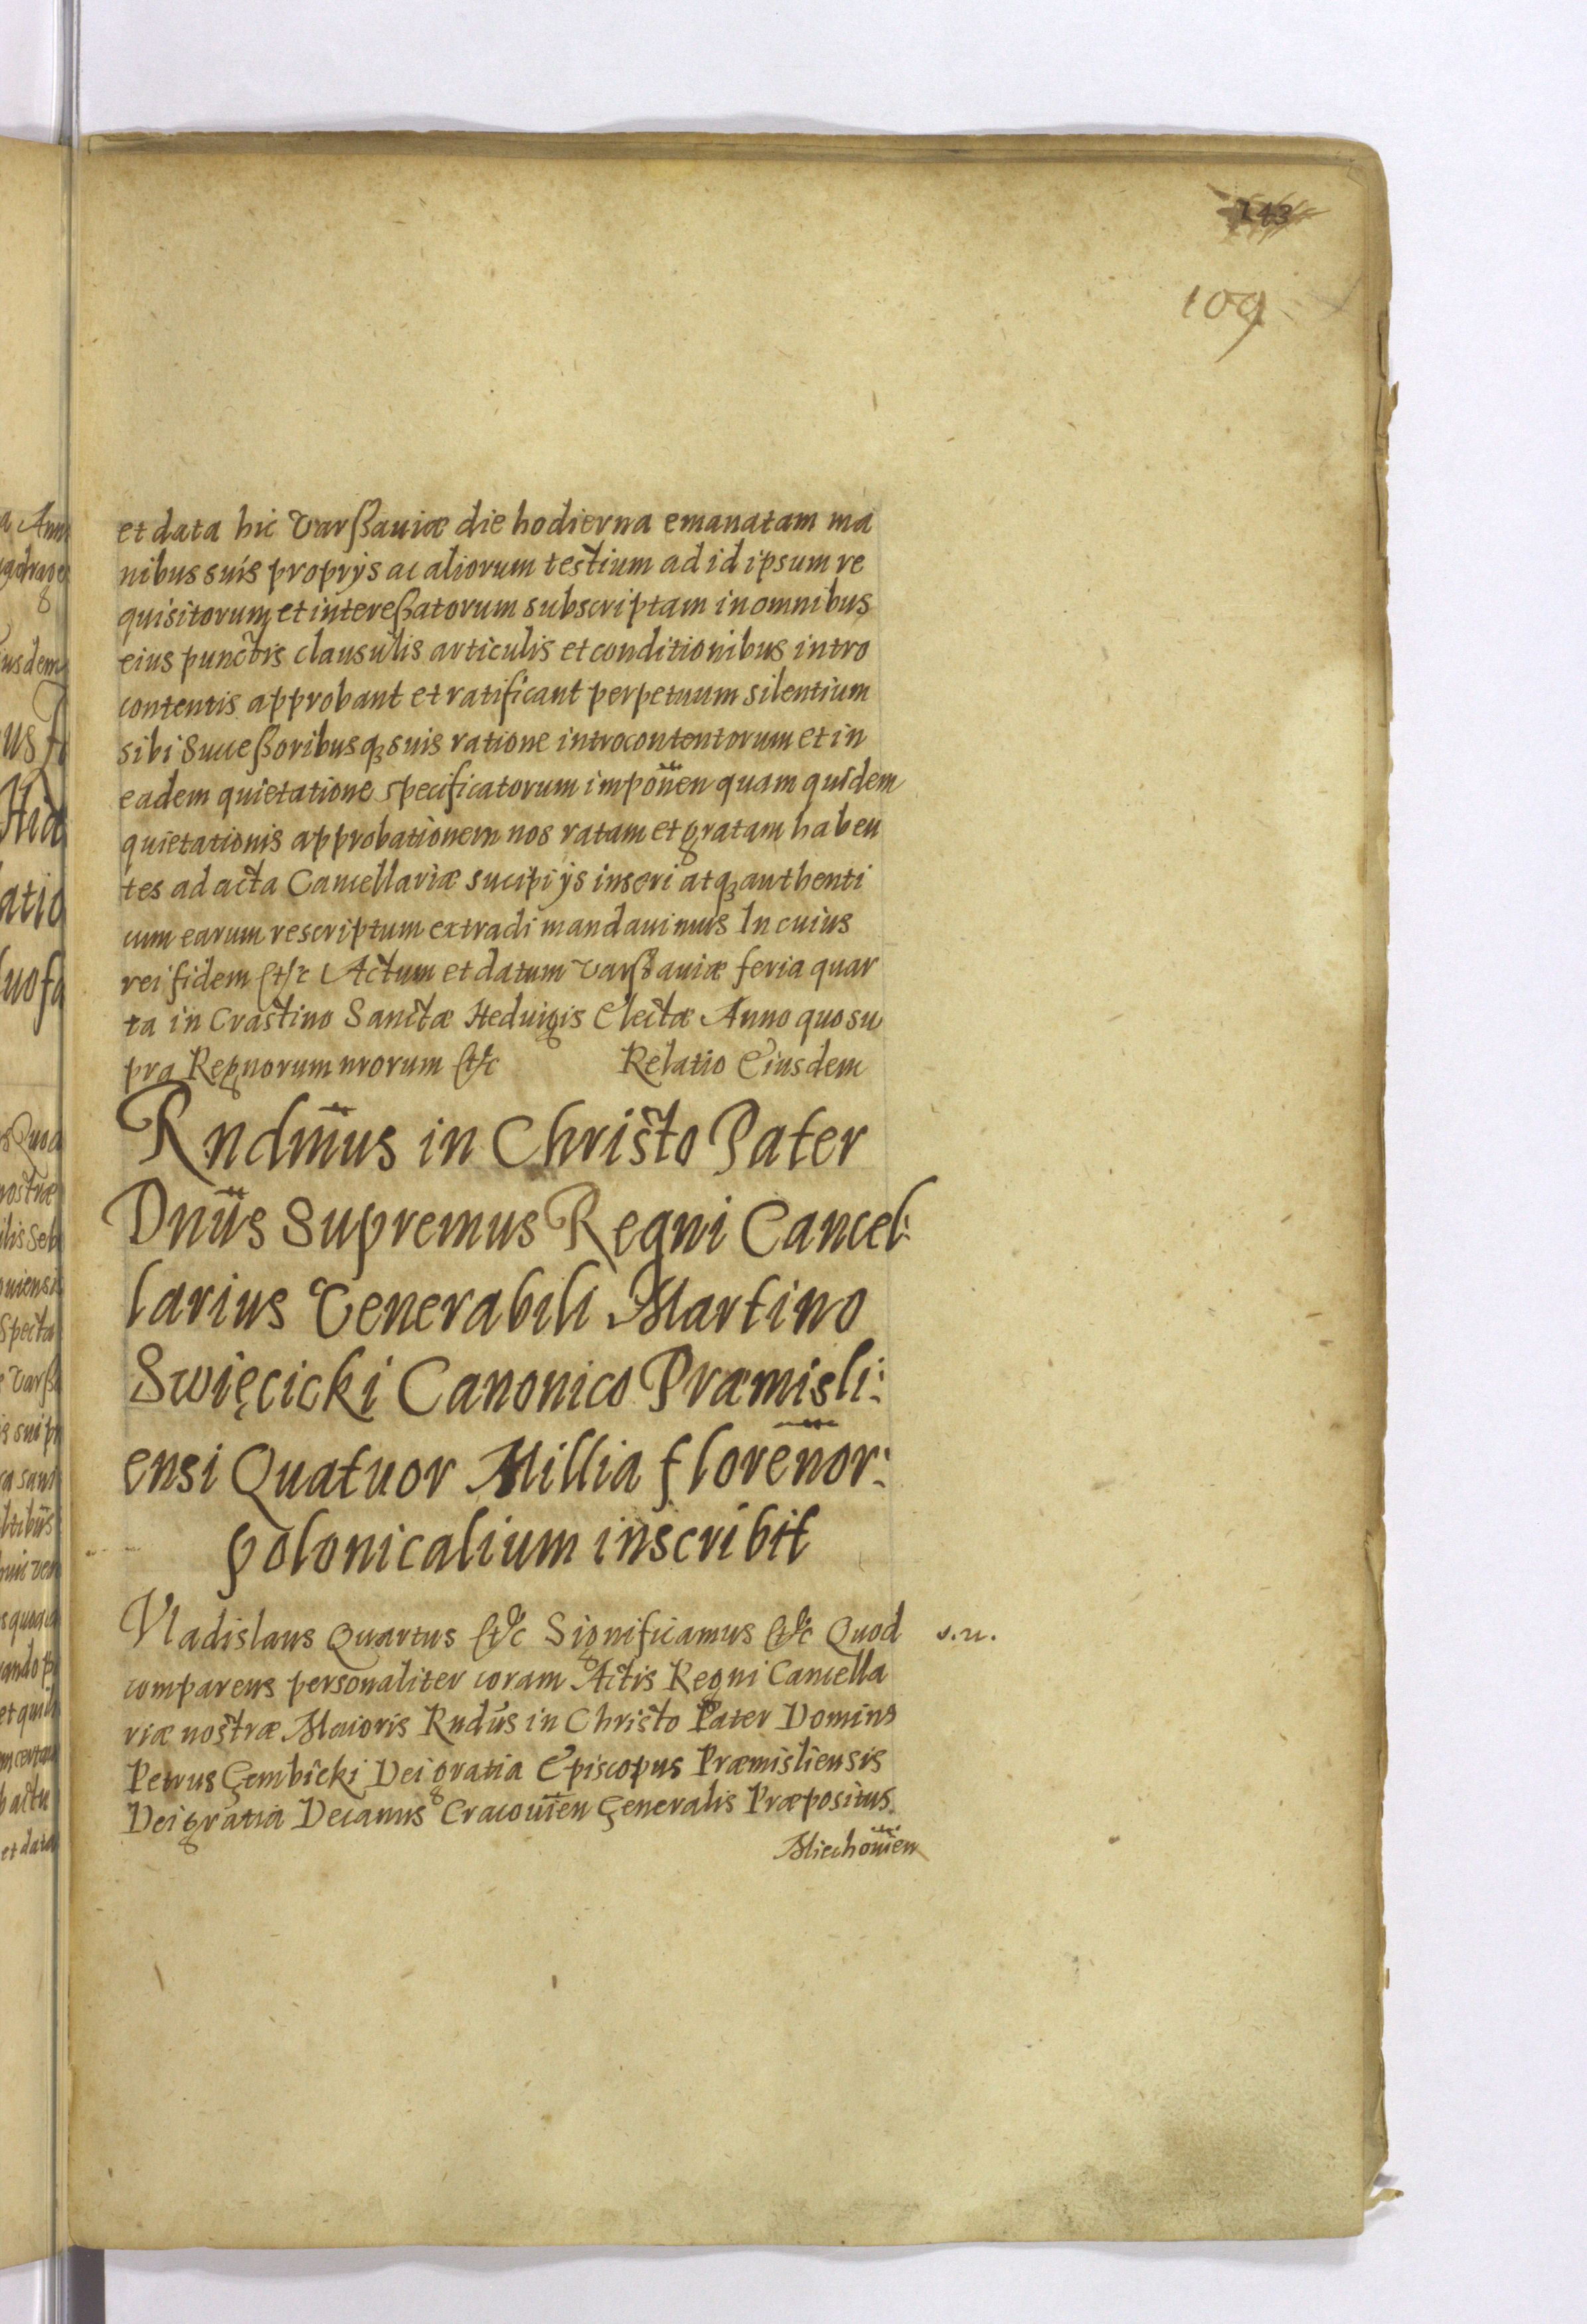 243
109
et data hic Varßauiæ die hodierna emanatam ma
nibus suis proprijs ac aliorum testium ad id ipsum re
quisitorum et intereßatorum subscriptam in omnibus
eius punctis clausulis articulis et conditionibus intro
contentis approbant et ratificant perpetuum silentium
sibi Succeßoribusq3 suis ratione introcontentorum et in
eadem quietatione specificatorum impoñen quam quidem
quietationis approbationem nos ratam et gratam haben
tes ad acta Cancellariæ sucipi ijs inseri atq3 authenti
cum earum rescriptum extradi mandauimus In cuius
rei fidem etc Actum et datum Varßauiæ feria quar
ta in Crastino Sanctæ Heduigis Electæ Anno quo su
pra Regnorum nrorum etc Relatio Eiusdem
Rndm̃us in Christo Pater
Dnũs Supremus Regni Cancel:
larius Venerabili Martino
Swięcicki Canonico Præmisli:
ensi Quatuor Millia floreñor:
polonicalium inscribit
Vladislaus Quartus etc Significamus etc Quod s.n.
comparens personaliter coram Actis Regni Cancella
riæ nostræ Maioris Rndus in Christo Pater Dominus
Petrus Gembicki Dei gratia Episcopus Præmisliensis
Dei gratia Decanus Cracouien Generalis Præpositus
Miechouien